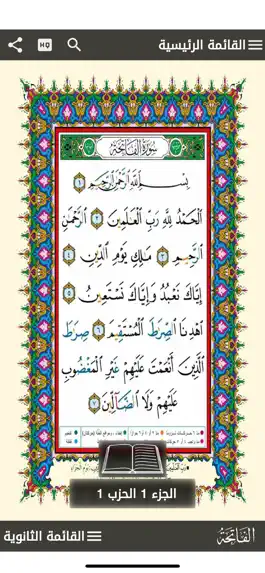 القائمة الرئيسية
HQ
سُورَةُ الفَاتِحَةِ
بِسْمِ ٱللَّهِ ٱلرَّحْمَٰنِ ٱلرَّحِيمِ ١
ٱلْحَمْدُ لِلَّهِ رَبِّ ٱلْعَٰلَمِينَ ٢ ٱلرَّحْمَٰنِ
ٱلرَّحِيمِ ٣ مَٰلِكِ يَوْمِ ٱلدِّينِ ٤
إِيَّاكَ نَعْبُدُ وَإِيَّاكَ نَسْتَعِينُ ٥
ٱهْدِنَا ٱلصِّرَٰطَ ٱلْمُسْتَقِيمَ ٦ صِرَٰطَ
ٱلَّذِينَ أَنْعَمْتَ عَلَيْهِمْ غَيْرِ ٱلْمَغْضُوبِ
عَلَيْهِمْ وَلَا ٱلضَّآلِّينَ ٧
الجزء 1 الحزب 1
القائمة الثانوية
الفَاتِحَة